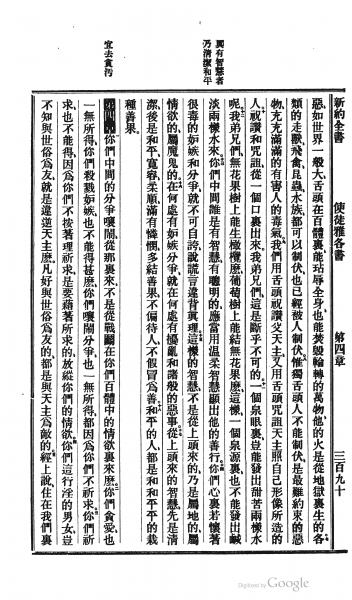 新約全書 使徒雅各書 第四章 三百九十
惡如世界一般大舌頭在百體裏能玷辱全身也能焚毀輪轉的萬物他的火是從地獄裏生的各
類的走獸飛禽昆蟲水族都可以制伏也已經被人制伏惟獨舌頭人不能制伏是最難約束的惡
物充充滿滿的有害人的毒氣我們用舌頭祝讚父天主又用舌頭咒詛天主照自己形像所造的
人祝讚和咒詛從一個口裏出來我弟兄們這是斷乎不可的一個泉眼裏豈能發出甜苦兩樣水
呢我弟兄們無花果樹上能生橄欖麽葡萄樹上能結無花果麽這樣一個泉源裏也不能發出鹹
淡兩樣水來你們中間誰是有智慧有聰明的應當用溫柔智慧顯出他的善行你們心裏若懷著
很毒的妬嫉和分爭就不可自誇說謊言違背眞理這樣的智慧不是從上頭來的乃是屬地的屬
情欲的屬魔鬼的在何處有妬嫉分爭就在何處有擾亂和諸般的惡事從上頭來的智慧先是清
潔後是和平寬容柔順滿有憐憫多結善果不偏待人不假冒爲善和平的人都是和和平平的栽
種善果
第四章你們中間的分爭嚷鬧從那裏來不是從戰鬭在你們百體中的情欲裏來麽你們貪愛也
一無所得你們殺戮妬嫉也不能得甚麽你們嚷鬧分爭也一無所得都因爲你們不祈求你們祈
求也不能得因爲你們不按著理祈求是要藉著所求的放縱你們的情欲你們這行淫的男女豈
不知與世俗爲友就是違逆天主麽凡好與世俗爲友的都是與天主爲敵的經上說住在我們裏
眞有智慧者
乃清潔和平
宜去貪污
Digitized by Google